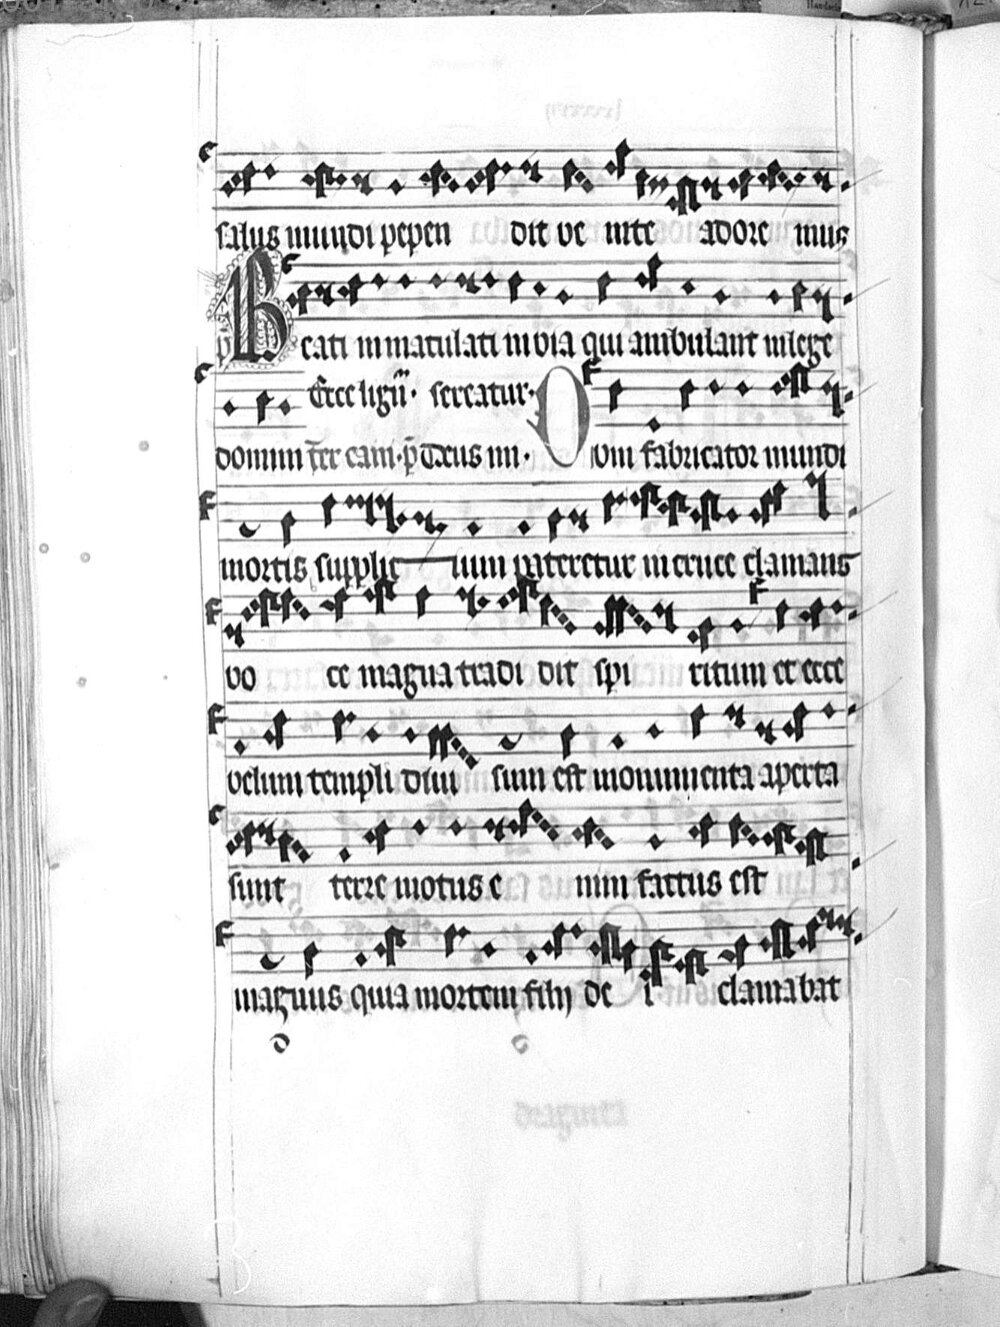 salus mundi pepen dit ve nite adore mus
p̄ Beati inmaculati in via qui ambulant in lege
Ecce lignū · seccatur · O
domini ter can · p̄ deus mi · Dum fabricator mundi
mortis supplic ium pateretur in cruce clamans
vo ce magna tradi dit spi ritum et ecce
velum templi divi sum est monumenta aperta
sunt terre motus e nim factus est
magnus quia mortem filij de i clamabat